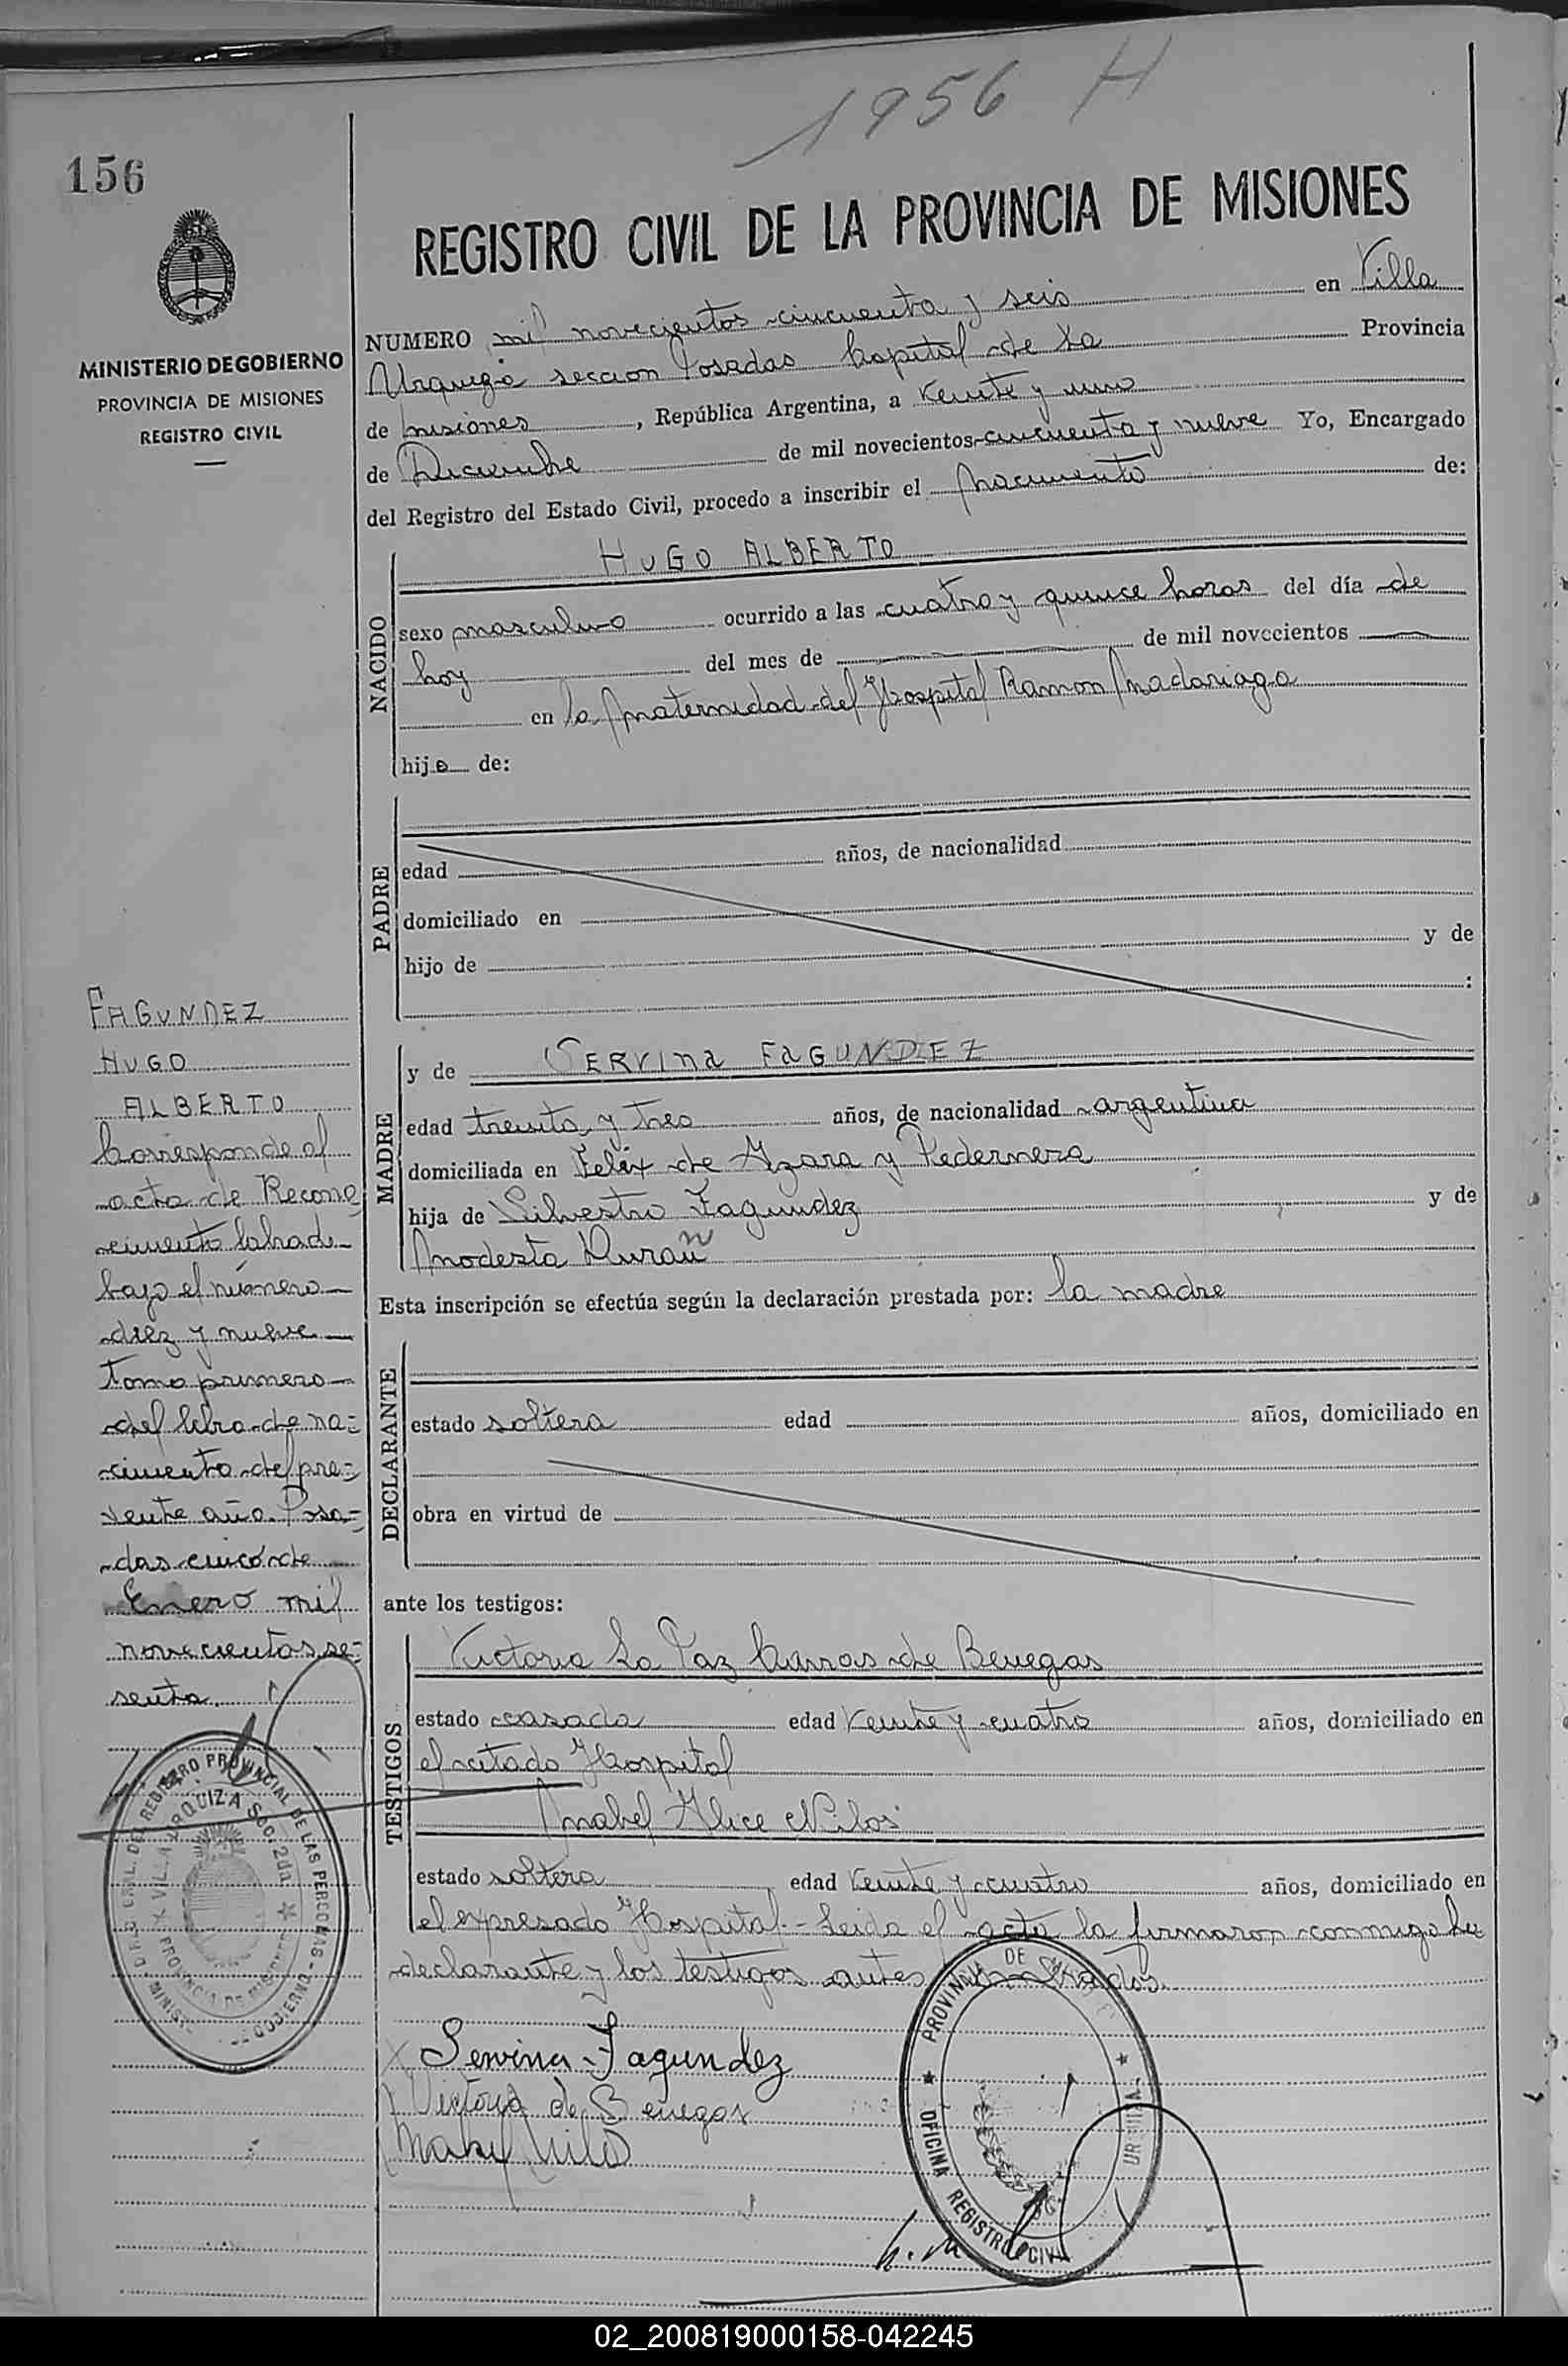 1956 H
156
MINISTERIO DE GOBIERNO
PROVINCIA DE MISIONES
REGISTRO CIVIL
REGISTRO CIVIL DE LA PROVINCIA DE MISIONES
NUMERO mil novecientos cincuenta y seis en Villa
Urquiza seccion Posadas Capital de La Provincia
de Misiones, República Argentina, a veinte y uno
de Diciembre de mil novecientos cincuenta y nueve Yo, Encargado
del Registro del Estado Civil, procedo a inscribir el Nacimiento de:
NACIDO
HUGO ALBERTO
sexo masculino ocurrido a las cuatro y quince horas del día de
hoy del mes de de mil novecientos
en la Maternidad del Hospital Ramon Madariaga
hijo de:
PADRE
edad años, de nacionalidad
domiciliado en
hijo de y de
:
MADRE
y de SERVINA FAGUNDEZ
edad treinta y tres años, de nacionalidad argentina
domiciliada en Felix de Azara y Pedernera
hija de Silvestro Fagundez y de
Modesta Duran
Esta inscripción se efectúa según la declaración prestada por: la madre
DECLARANTE
estado soltera edad años, domiciliado en
obra en virtud de
ante los testigos:
TESTIGOS
Victoria La Paz de Benegas
estado casada edad veinte y cuatro años, domiciliado en
el citado Hospital
Mabel Alice Nilos
estado soltera edad veinte y cuatro años, domiciliado en
el expresado Hospital.- Leida el acta la firmaron conmigo la
declarante y los testigos antes nombrados.
Servina Fagundez
Victoria de Benegas
Mabel Nilos
FAGUNDEZ
HUGO
ALBERTO
Corresponde al
acta de Recono
cimiento labrada
bajo el número
diez y nueve
tomo primero
del libro de na=
cimiento del pre=
sente año. Posa=
das cinco de
Enero mil
novecientos se=
senta.
DIR. GRAL. DEL REGISTRO PROVINCIAL DE LAS PERSONAS - MINIST. DE GOBIERNO
VILLA URQUIZA Sec. 2da. PROVINCIA DE MISIONES
PROVINCIA DE
OFICINA REGISTRO CIVIL
02_200819000158-042245